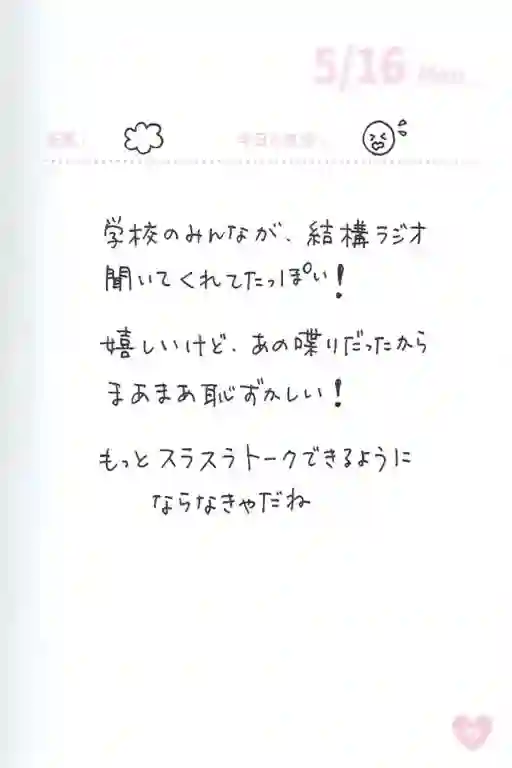 5/16 Mon.
天気：
今日の気分：
学校のみんなが、結構ラジオ
聞いてくれてたっぽい！
嬉しいけど、あの喋りだったから
まあまあ恥ずかしい！
もっとスラスラトークできるように
ならなきゃだね